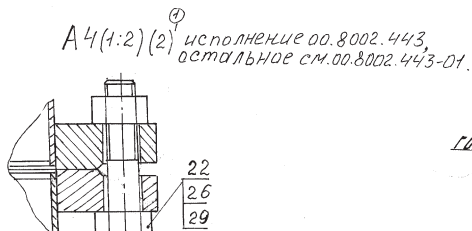 1
А4(1:2)(2) исполнение 00.8002.443,
остальное см.00.8002.443-01.
22
26
29